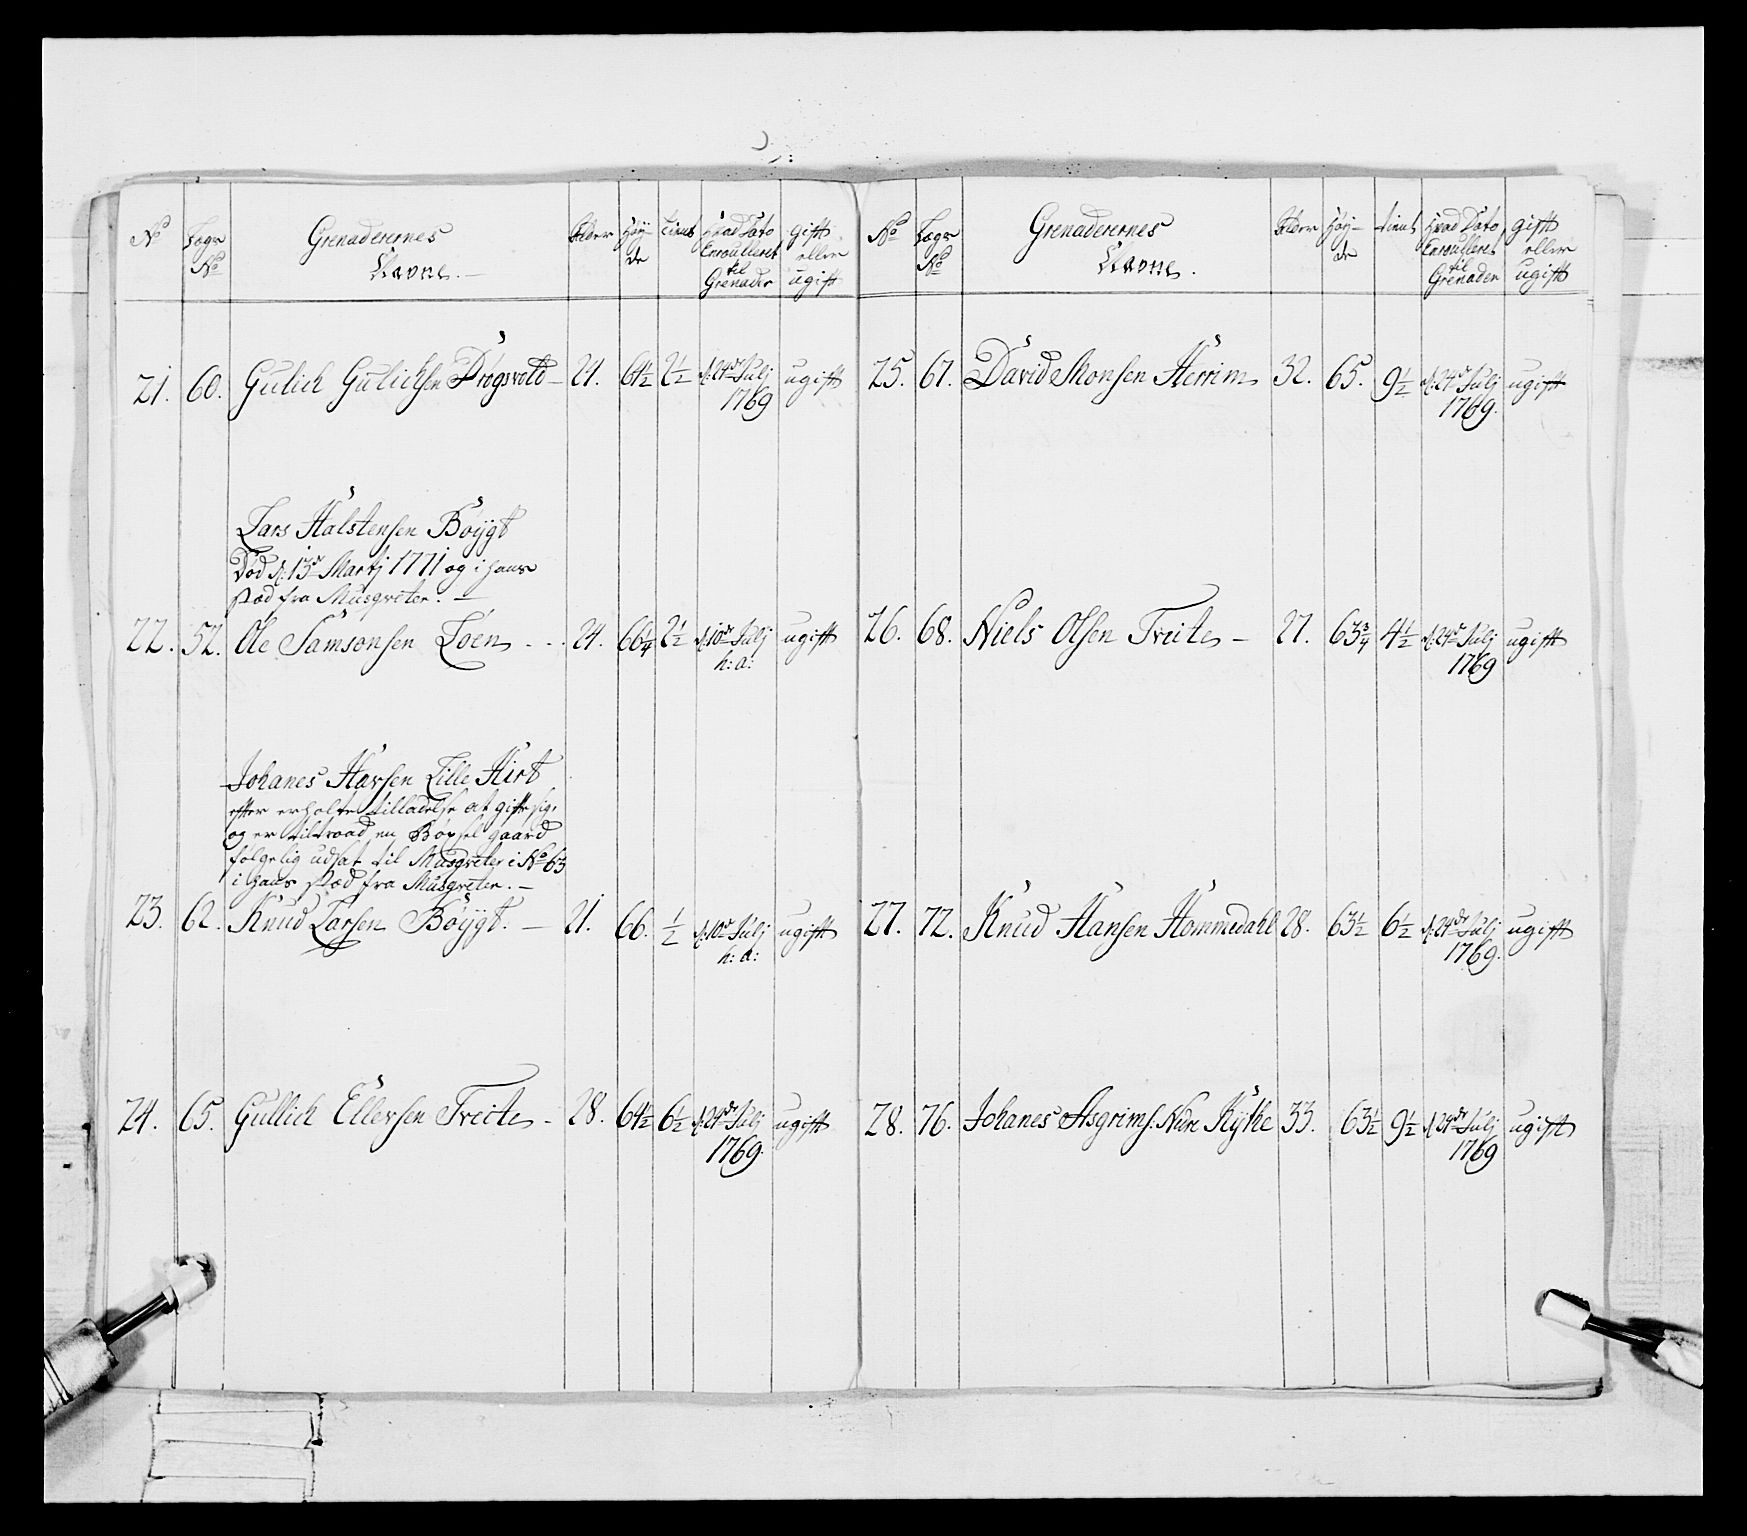 No Lægs No Grenaderernes Navne. Alder Høy-de tient Hvad Dato Enroulleret til Grenader gift eller ugift
21. 60. Gulich Gulichsen Drøgsvold 24. 64½ 2½ d: 24de Julj 1769 ugift
Lars Halstensen Bøÿgt
Død d: 13de Martj 1771 og i hans
stæd fra Musqveter. —
22. 52. Ole Samsonsen Loen - - 24. 66¼ 2½ d: 10de Julj h: a: ugift
Johanes Havsen Lille Hirt
efter erholte tilladelse at gifte sig,
og er tiltraad en Bøxel gaard
følgelig udsat til Musqveter i No 63
i hans stæd fra Musqveter. —
23. 62. Knud Larsen Bøÿgt. — 21. 66. ½ d: 10de Julj h: a: ugift
24. 65. Gullich Ellevsen Treite - 28. 64½ 6½ d: 24de Julj 1769. ugift
No Lægs No Grenaderernes Navne. Alder Høy-de tient Hvad Dato Enroulleret til Grenader gift eller ugift
25. 67. David Monsen Herrim 32. 65. 9½ d: 24de Julj 1769. ugift
26. 68. Niels Olsen Treite — 27. 63¾ 4½ d: 24de Julj 1769 ugift
27. 72. Knud Hansen Hommedahl 28. 63½ 6½ d: 24de Julj 1769. ugift
28. 76. Johanes Asgrims: Nedre Kÿtke 33. 63½ 9½ d: 24de Julj 1769 ugift